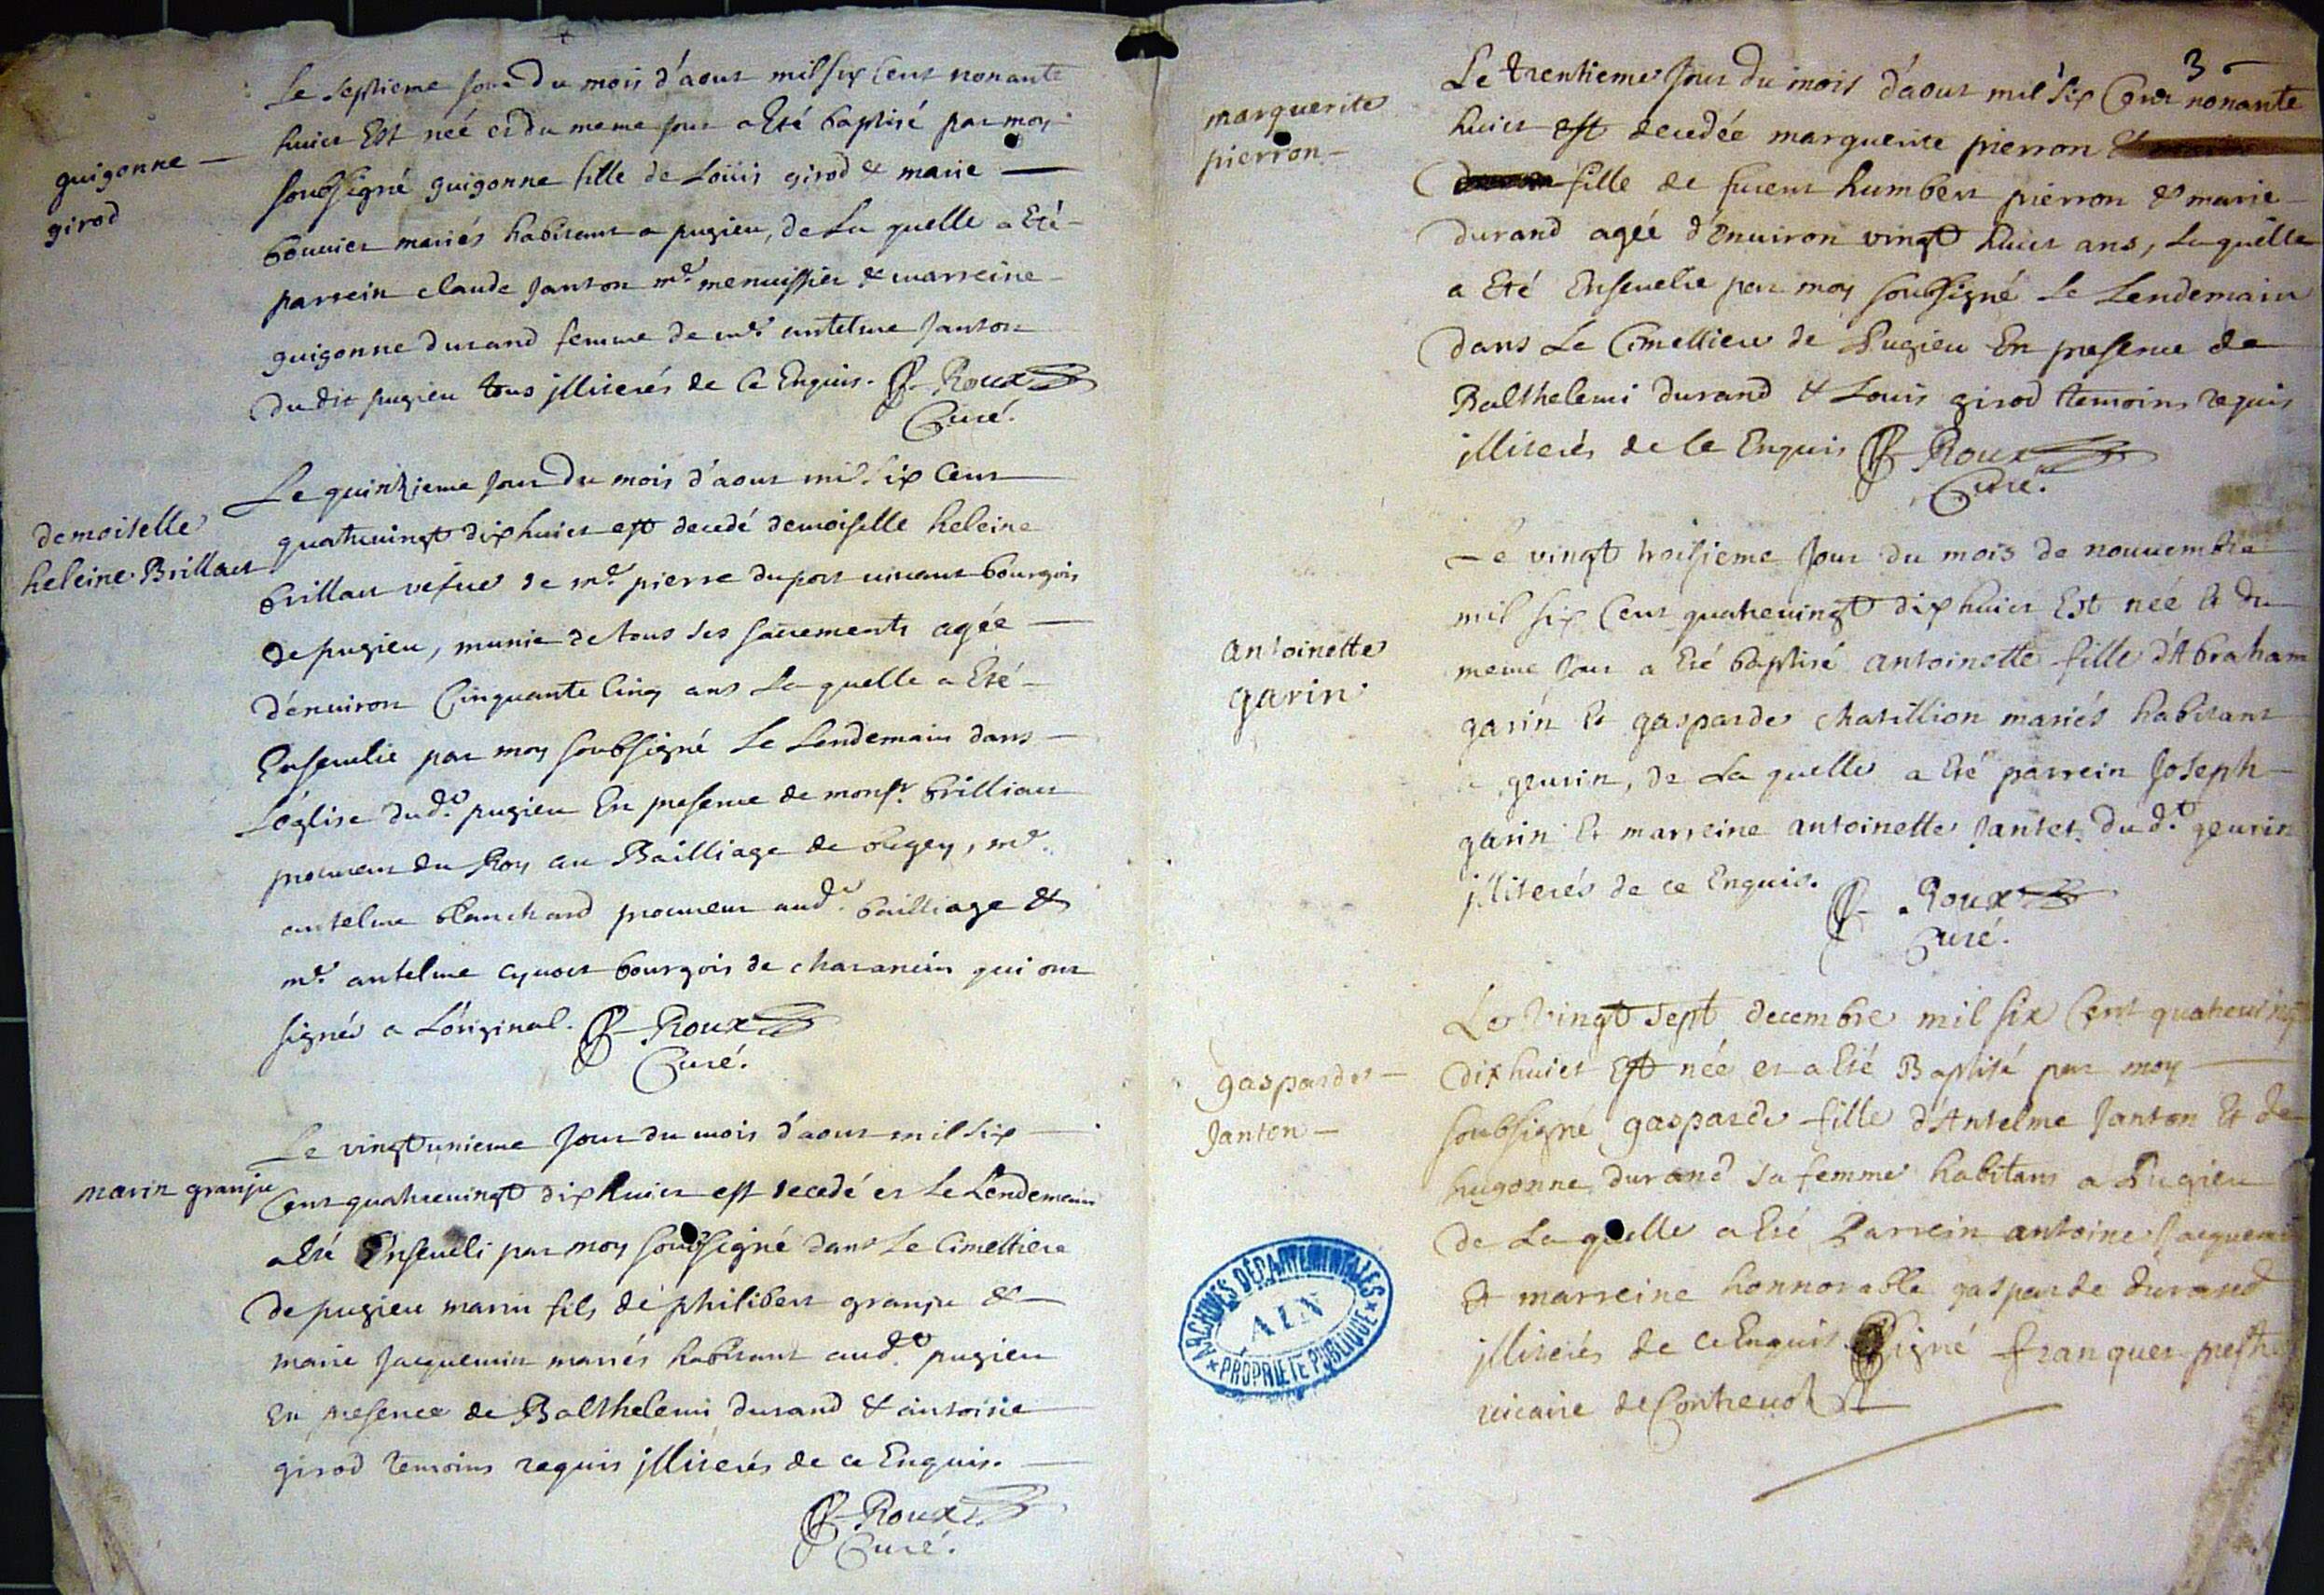 guigonne —
girod
Le septieme jour Du mois d'aout mil six cent nonante
huict Est née et du meme jour a Eté baptisé par moy
soubsigné guigonne fille de Loüis girod & marie —
bouvier mariés habitant a pugieu, de La quelle a Eté
parrein claude Janton md. menuissier & marreine
guigonne durand femme de md. antelme Janton
Du dit pugieu tous jlliterés de Ce Enquis. Roux
Curé.
demoiselle
heleine Brillat
Le quinzieme jour Du mois d'aout mil six Cent
quatrevingt dix huict est decedé demoiselle heleine
brillat vefue de md. pierre duport vivant bourgois
de pugieu, munie de tous ses sacrements agée —
d'énviron Cinquante Cinq ans La quelle a Eté
Ensevelie par moy soubsigné Le Lendemain dans
L'églize dud. pugieu En presence de monsr. brillian
procureur du Roy au Bailliage de bugey, md.
antelme blanchard procureur aud. bailliage &
md. antelme cynoet bourgois de charancin qui ont
signés a L'original. Roux
Curé.
marin granju
Le vingt unieme jour du mois d'aout mil six —
Cent quatrevingt dix huict est decedé et Le Lendemain
a Eté Enseveli par moy soubsigné dans Le Cimettiere
de pugieu marin fils de philibert granju &
marie jacquemin mariés habitant aud. pugieu
En presence de Balthelemi durand & antoine
girod temoins requis jlliterés de ce Enquis.
Roux
Curé.
3
marguerite
pierron
Le trentieme jour Du mois d'aout mil six Cent nonante
huict est decedée marguerite pierron
fille de furent humbert pierron & marie
durand agée d'énviron vingt huict ans, Laquelle
a Eté Ensevelie par moy soubsigné Le Lendemain
dans Le Cimettiere de Pugieu En presence de
Balthelemi durand & Louis girod temoins requis
jlliterés de Ce Enquis Roux
Curé.
antoinette
garin
Le vingt troisieme jour du mois de nouuembre
mil six Cent quatrevingt dix huict Est née & du
meme jour a Eté baptisé antoinette fille d'Abraham
garin & gasparde chatillion mariés habitant
a geurin, de La quelle a Eté parrein Joseph
garin Et marreine antoinette Jantet du d. geurin
jlliterés de ce Enquis.
Roux
Curé.
gasparde —
Janton —
Le Vingt Sept decembre mil six Cent quatreuingt
dix huict Est née et a Eté Baptisé par moy —
soubsigné gasparde fille d'Antelme Janton Et de
hugonne durand sa femme habitans a Pugieu
de La quelle a Eté Parrein antoine Jacquemi
& marreine honnorable gasparde durand
jlliterés de Ce Enquis. Signé franquet prestre
vicaire de Contrevoz
ARCHIVES DÉPARTEMENTALES
AIN
PROPRIÉTÉ PUBLIQUE